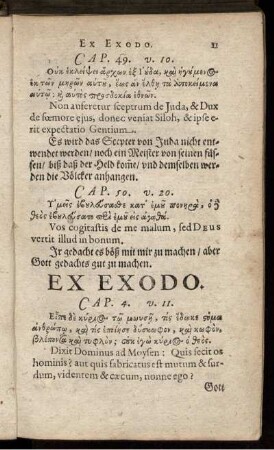 EX EXODO. 21
CAP. 49. v. 10.
Οὐκ ἐκλείψει ἄρχων ἐξ Ἰούδα, καὶ ἡγούμενος
ἐκ τῶν μηρῶν αὐτοῦ, ἕως ἂν ἔλθῃ τὰ ἀποκείμενα
αὐτῷ; ἢ αὐτὸς προσδοκία ἐθνῶν.
Non auferetur sceptrum de Juda, & Dux
de fœmore ejus, donec veniat Siloh, & ipse e-
rit expectatio Gentium.
Es wird das Scepter von Juda nicht ent-
wendet werden/ noch ein Meister von seinen füs-
sen/ biß daß der Held kom̃e/ vnd demselben wer-
den die Völcker anhangen.
CAP. 50. v. 20.
Ὑμεῖς ἐβουλεύσασθε κατ' ἐμοῦ πονηρὰ, ὁ
θεὸς ἐβουλεύσατο περὶ ἐμοῦ εἰς ἀγαθά.
Vos cogitastis de me malum, sed DEUS
vertit illud in bonum.
Jr gedacht es böß mit mir zu machen/ aber
Gott gedachts gut zu machen.
EX EXODO.
CAP. 4. v. 11.
Εἶπε δὲ κύριος τῷ μωυσῇ, τίς ἔδωκε στόμα
ἀνθρώπῳ, καὶ τίς ἐποίησε δύσκωφον, καὶ κωφὸν,
βλέποντα καὶ τυφλόν; οὐκ ἐγὼ κύριος ὁ θεός.
Dixit Dominus ad Moysen: Quis fecit os
hominis? aut quis fabricatus est mutum & sur-
dum, videntem & cæcum, nonne ego?
Gott